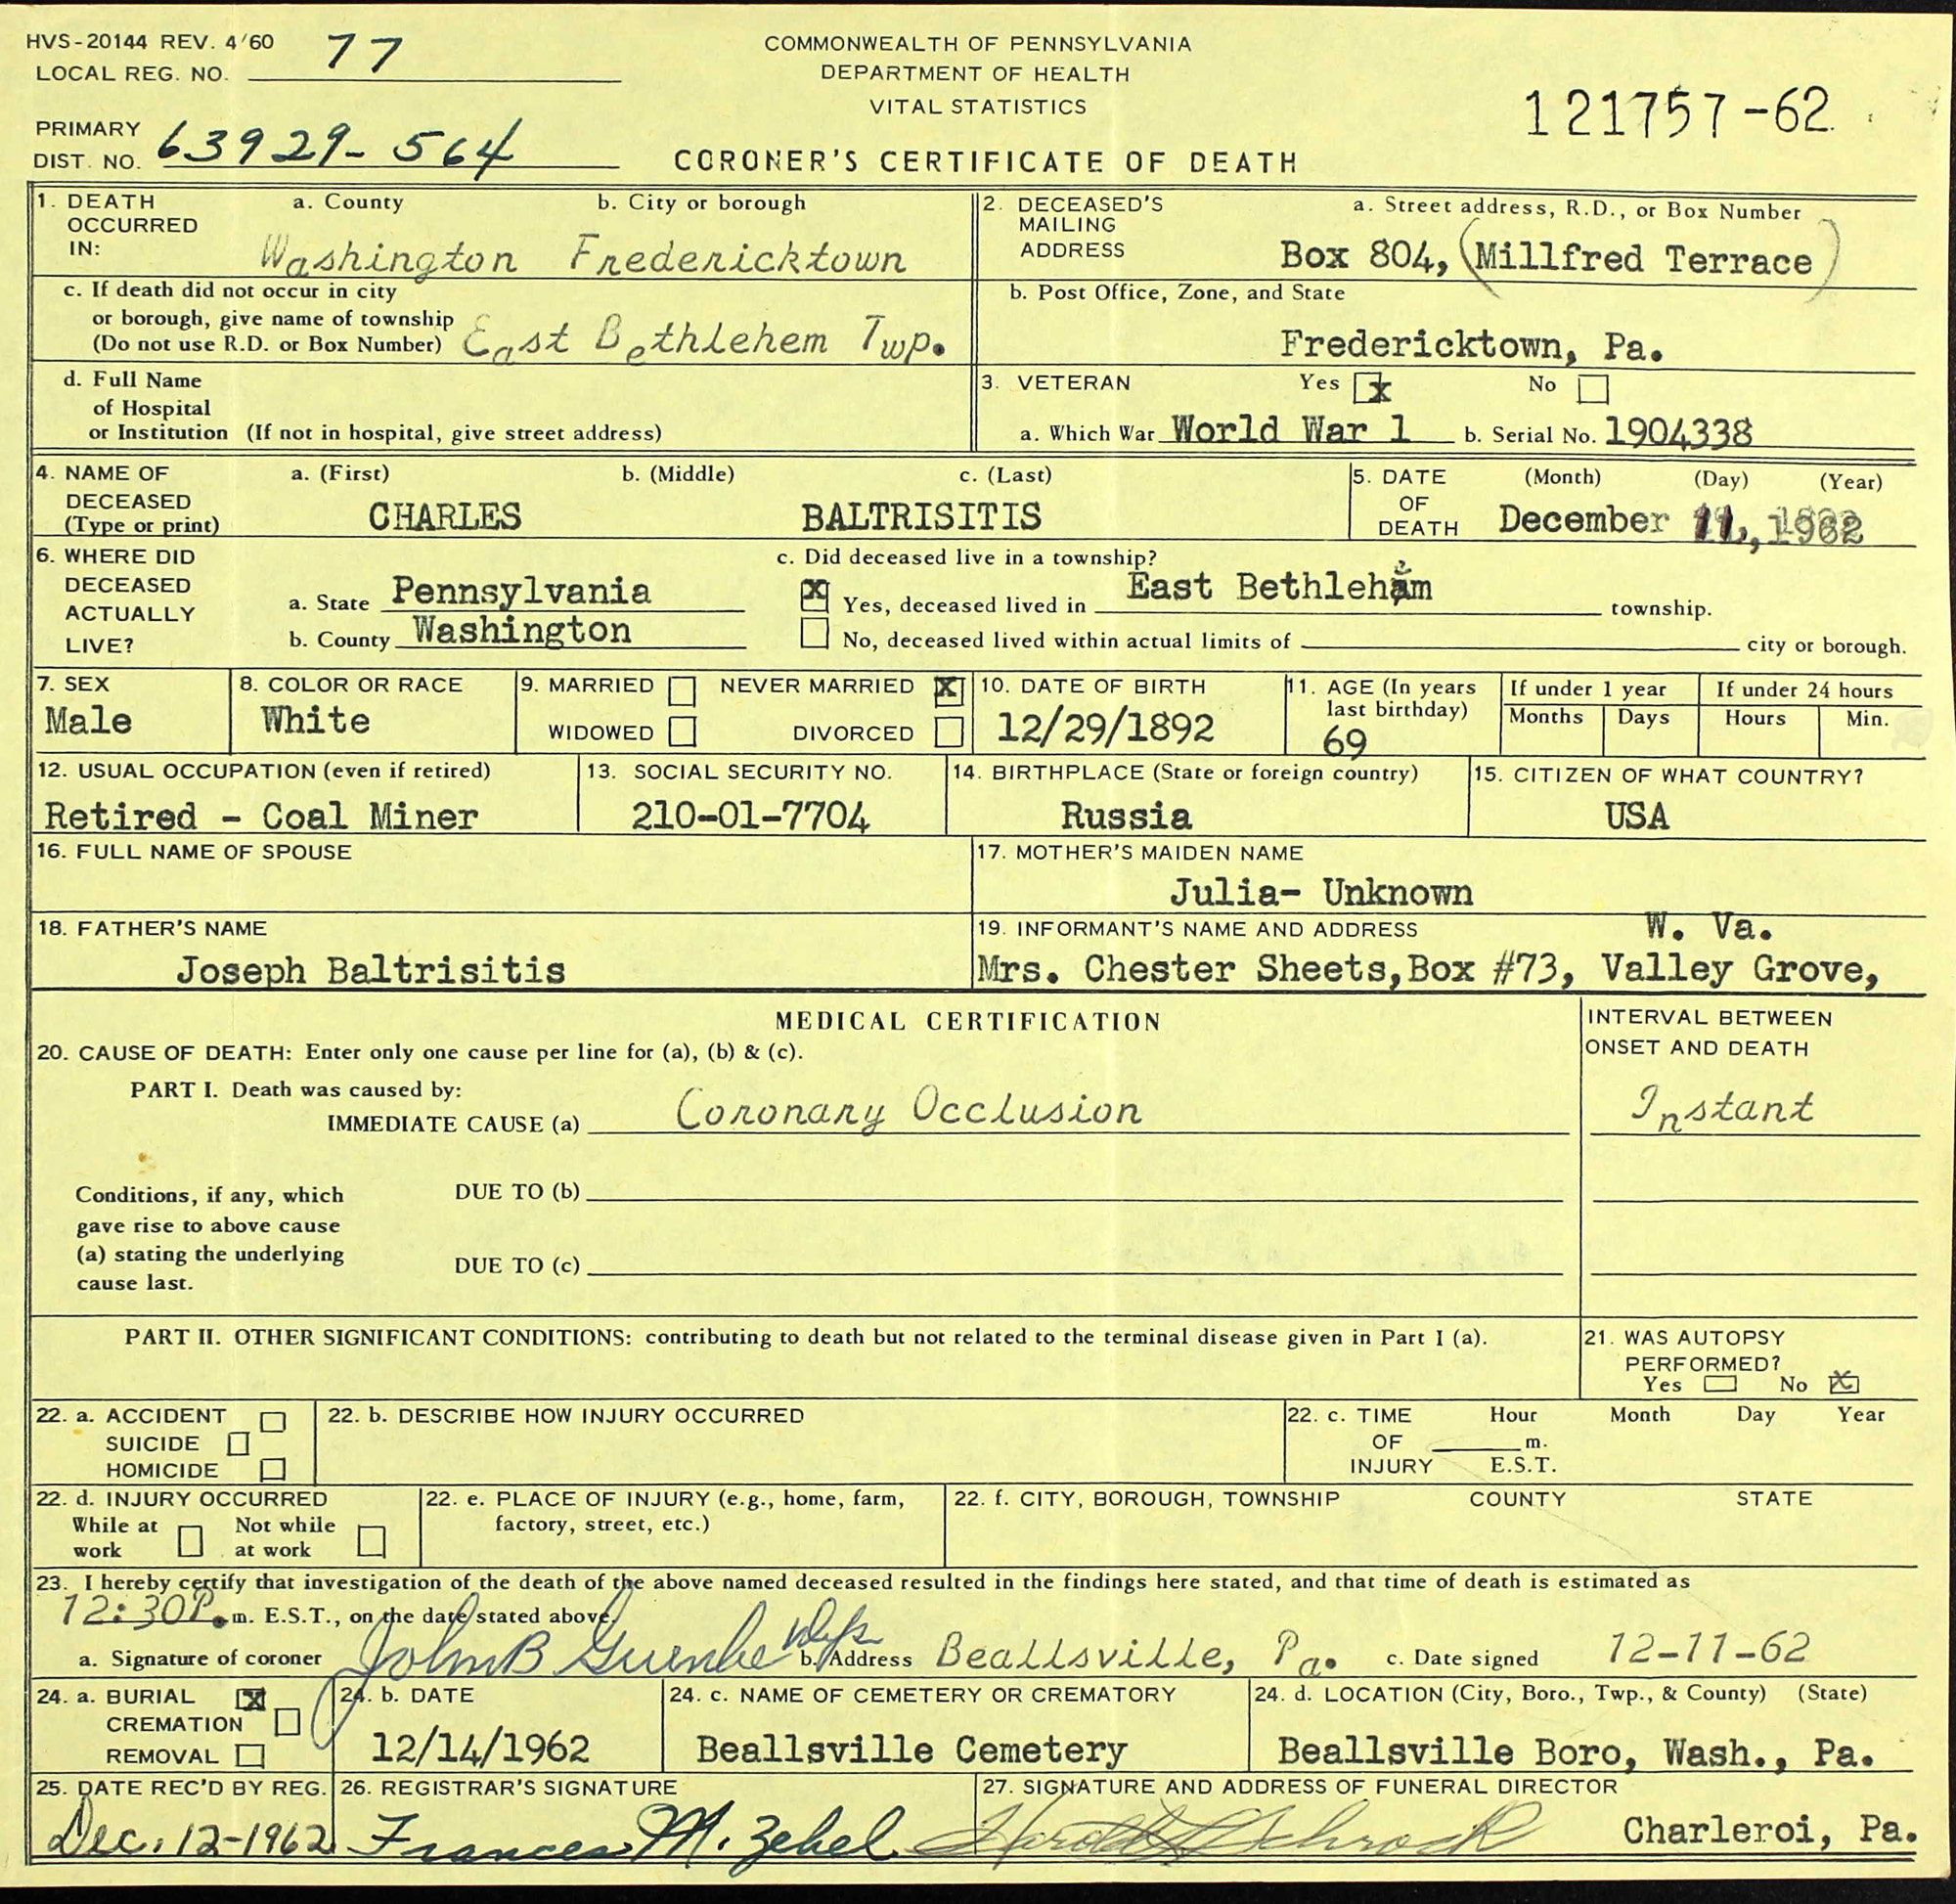 HVS-20144 REV. 4/60
LOCAL REG. NO. 77
COMMONWEALTH OF PENNSYLVANIA
DEPARTMENT OF HEALTH
VITAL STATISTICS
121757-62
PRIMARY
DIST. NO. 63929-564
CORONER'S CERTIFICATE OF DEATH
1. DEATH OCCURRED IN: a. County b. City or borough
Washington Fredericktown
c. If death did not occur in city
or borough, give name of township
(Do not use R.D. or Box Number) East Bethlehem Twp.
d. Full Name
of Hospital
or Institution (If not in hospital, give street address)
2. DECEASED'S MAILING ADDRESS a. Street address, R.D., or Box Number
Box 804, (Millfred Terrace)
b. Post Office, Zone, and State
Fredericktown, Pa.
3. VETERAN Yes x No
a. Which War World War 1 b. Serial No. 1904338
4. NAME OF DECEASED (Type or print) a. (First) b. (Middle) c. (Last)
CHARLES BALTRISITIS
5. DATE OF DEATH (Month) (Day) (Year)
December 11, 1962
6. WHERE DID DECEASED ACTUALLY LIVE?
a. State Pennsylvania
b. County Washington
c. Did deceased live in a township?
X Yes, deceased lived in East Bethlehem township.
No, deceased lived within actual limits of city or borough.
7. SEX
Male
8. COLOR OR RACE
White
9. MARRIED NEVER MARRIED X
WIDOWED DIVORCED
10. DATE OF BIRTH
12/29/1892
11. AGE (In years last birthday)
69
If under 1 year
Months Days
If under 24 hours
Hours Min.
12. USUAL OCCUPATION (even if retired)
Retired - Coal Miner
13. SOCIAL SECURITY NO.
210-01-7704
14. BIRTHPLACE (State or foreign country)
Russia
15. CITIZEN OF WHAT COUNTRY?
USA
16. FULL NAME OF SPOUSE
17. MOTHER'S MAIDEN NAME
Julia- Unknown
18. FATHER'S NAME
Joseph Baltrisitis
19. INFORMANT'S NAME AND ADDRESS W. Va.
Mrs. Chester Sheets, Box #73, Valley Grove,
MEDICAL CERTIFICATION
INTERVAL BETWEEN
ONSET AND DEATH
20. CAUSE OF DEATH: Enter only one cause per line for (a), (b) & (c).
PART I. Death was caused by:
IMMEDIATE CAUSE (a) Coronary Occlusion Instant
Conditions, if any, which
gave rise to above cause
(a) stating the underlying
cause last.
DUE TO (b)
DUE TO (c)
PART II. OTHER SIGNIFICANT CONDITIONS: contributing to death but not related to the terminal disease given in Part I (a).
21. WAS AUTOPSY
PERFORMED?
Yes No X
22. a. ACCIDENT
SUICIDE
HOMICIDE
22. b. DESCRIBE HOW INJURY OCCURRED
22. c. TIME OF INJURY Hour Month Day Year
m.
E.S.T.
22. d. INJURY OCCURRED
While at work Not while at work
22. e. PLACE OF INJURY (e.g., home, farm,
factory, street, etc.)
22. f. CITY, BOROUGH, TOWNSHIP COUNTY STATE
23. I hereby certify that investigation of the death of the above named deceased resulted in the findings here stated, and that time of death is estimated as
12:30P.m. E.S.T., on the date stated above.
a. Signature of coroner John B b. Address Beallsville, Pa. c. Date signed 12-11-62
24. a. BURIAL X
CREMATION
REMOVAL
24. b. DATE
12/14/1962
24. c. NAME OF CEMETERY OR CREMATORY
Beallsville Cemetery
24. d. LOCATION (City, Boro., Twp., & County) (State)
Beallsville Boro, Wash., Pa.
25. DATE REC'D BY REG.
Dec. 12-1962
26. REGISTRAR'S SIGNATURE
Frances M. Zebel
27. SIGNATURE AND ADDRESS OF FUNERAL DIRECTOR
Schrock Charleroi, Pa.